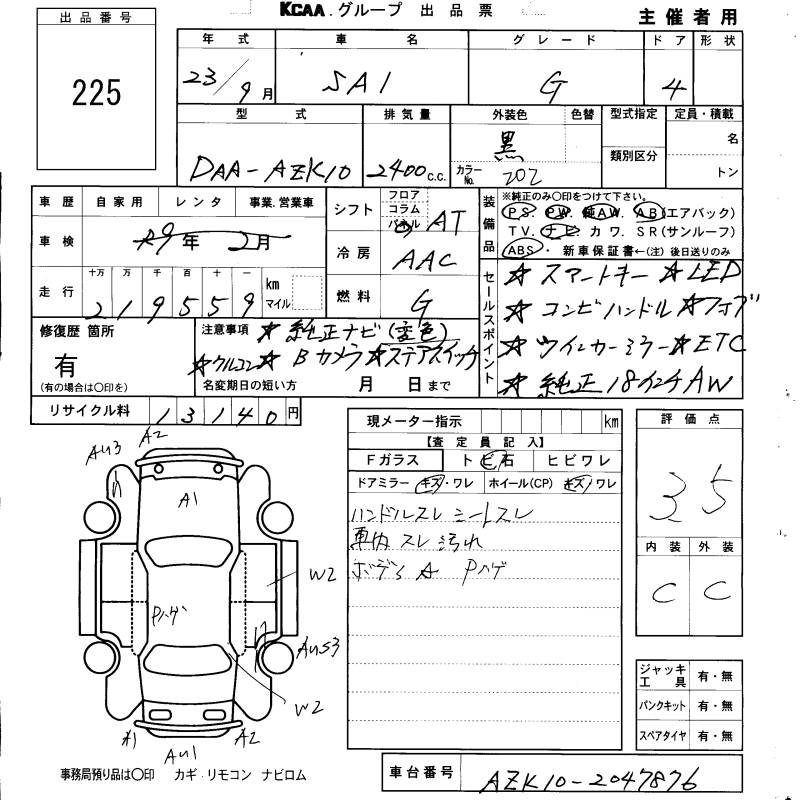 KCAA.グループ 出品票
主催者用
出品番号
225
年式 車名 グレード ドア 形状
23/9月 SAI G 4
型式 排気量 外装色 色替 型式指定 定員・積載
DAA-AZK10 2400c.c. 黒 名
類別区分
カラーNo. 202 トン
車歴 自家用 レンタ 事業.営業車
車検 R9年2月
走行 十万 万 千 百 十 一
219559 km マイル
シフト フロア コラム パネル AT
冷房 AAC
燃料 G
装備品 ※純正のみ〇印をつけて下さい。
PS. PW. 純AW. AB(エアバック)
TV. ナビ カワ. SR(サンルーフ)
ABS・ 新車保証書←(注)後日送りのみ
セールスポイント
★スマートキー★LED
★コンビハンドル★フォグ
★ウインカーミラー★ETC
★純正18インチAW
修復歴 箇所
有
(有の場合は〇印を)
注意事項 ★純正ナビ(変色)
★クルコン★Bカメラ★ステアスイッチ
名変期日の短い方 月 日まで
リサイクル料 13140円
現メーター指示 km
【査定員記入】
Fガラス トビ石 ヒビワレ
ドアミラー キズ・ワレ ホイール(CP) キズ/ワレ
ハンドルスレ シートスレ
車内 スレ 汚れ
ボデーA Pハゲ
評価点
35
内装 外装
C C
ジャッキ工具 有・無
パンクキット 有・無
スペアタイヤ 有・無
AU3 A2
A1
W2
Pハゲ
AUS3
W2
A1 AU1 A2
事務局預り品は〇印 カギ.リモコン ナビロム
車台番号 AZK10-2047876